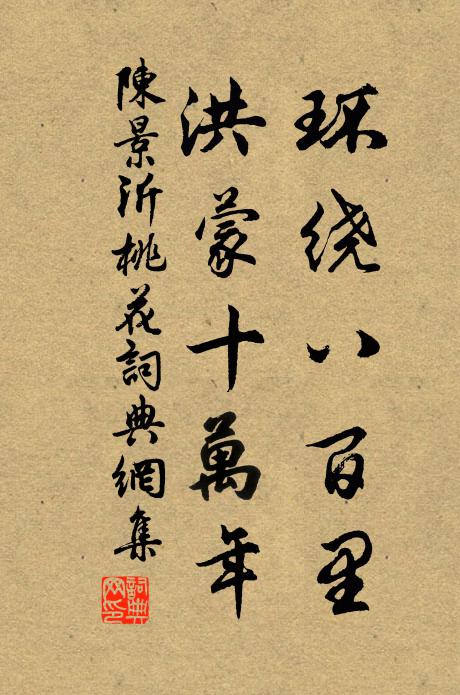 环绕八百里
洪蒙十萬年
陳景沂桃花詞典網集
詞典
网印